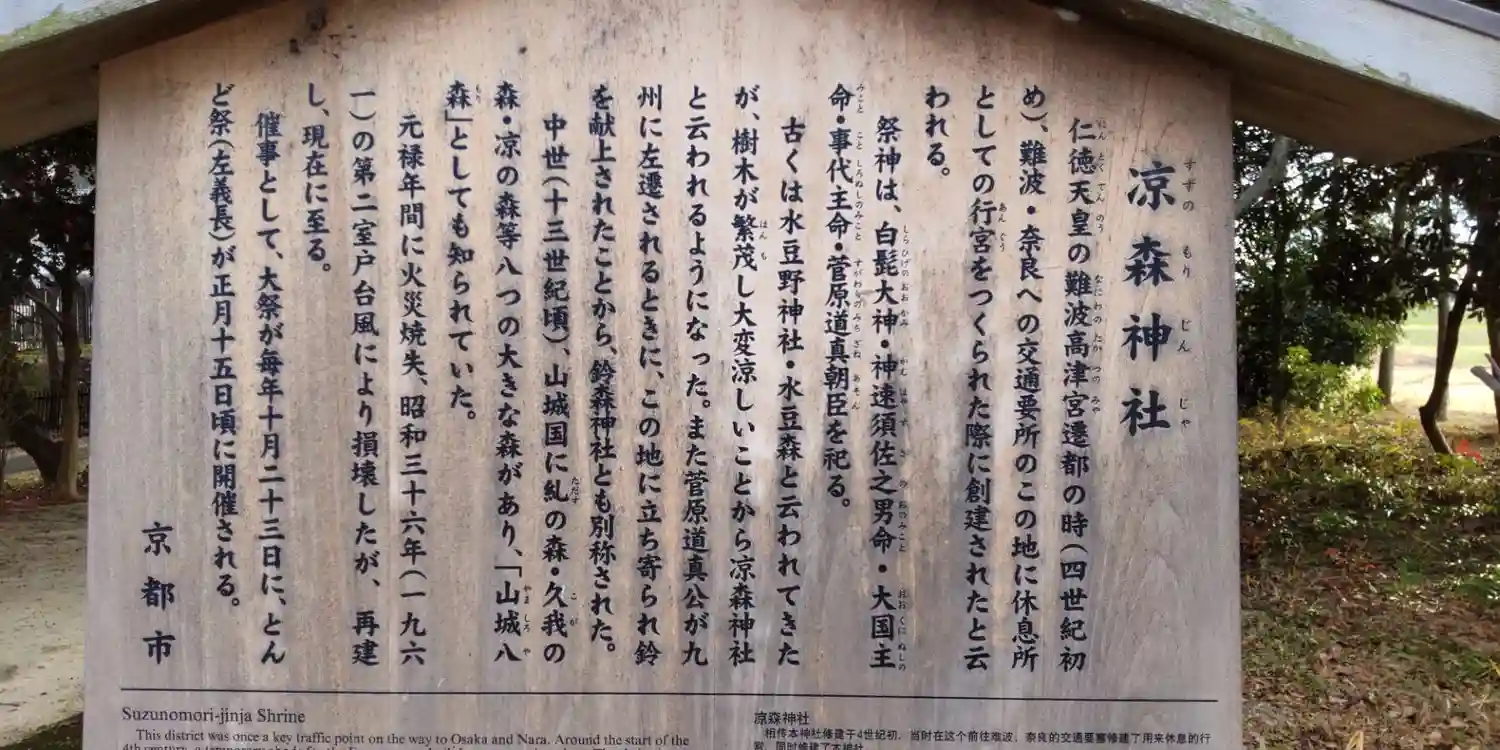 涼森神社
仁徳天皇の難波高津宮遷都の時(四世紀初
め)、難波・奈良への交通要所のこの地に休息所
としての行宮をつくられた際に創建されたと云
われる。
祭神は、白髭大神・神速須佐之男命・大国主
命・事代主命・菅原道真朝臣を祀る。
古くは水豆野神社・水豆森と云われてきた
が、樹木が繁茂し大変涼しいことから涼森神社
と云われるようになった。また菅原道真公が九
州に左遷されるときに、この地に立ち寄られ鈴
を献上されたことから、鈴森神社とも別称された。
中世(十三世紀頃)、山城国に糺の森・久我の
森・涼の森等八つの大きな森があり、「山城八
森」としても知られていた。
元禄年間に火災焼失、昭和三十六年(一九六
一)の第二室戸台風により損壊したが、再建
し、現在に至る。
催事として、大祭が毎年十月二十三日に、とん
ど祭(左義長)が正月十五日頃に開催される。
京都市
Suzunomori-jinja Shrine
This district was once a key traffic point on the way to Osaka and Nara. Around the start of the
凉森神社
相传本神社修建于4世纪初，当时在这个前往难波、奈良的交通要塞修建了用来休息的行
宫，同时修建了本神社